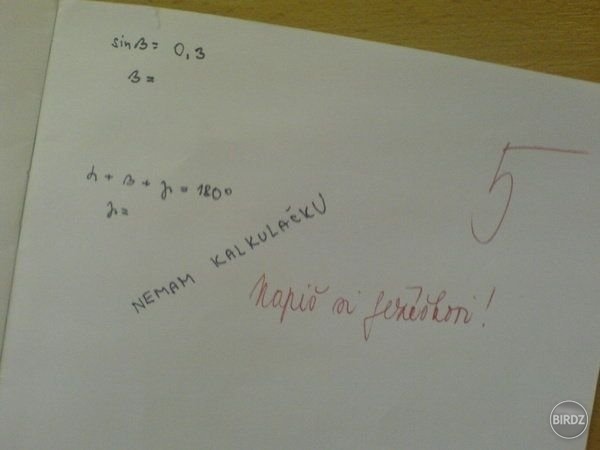 sinβ = 0,3
β =
α + β + γ = 180°
γ =
NEMAM KALKULAČKU
5
Napíš si Ježiškovi!
BIRDZ